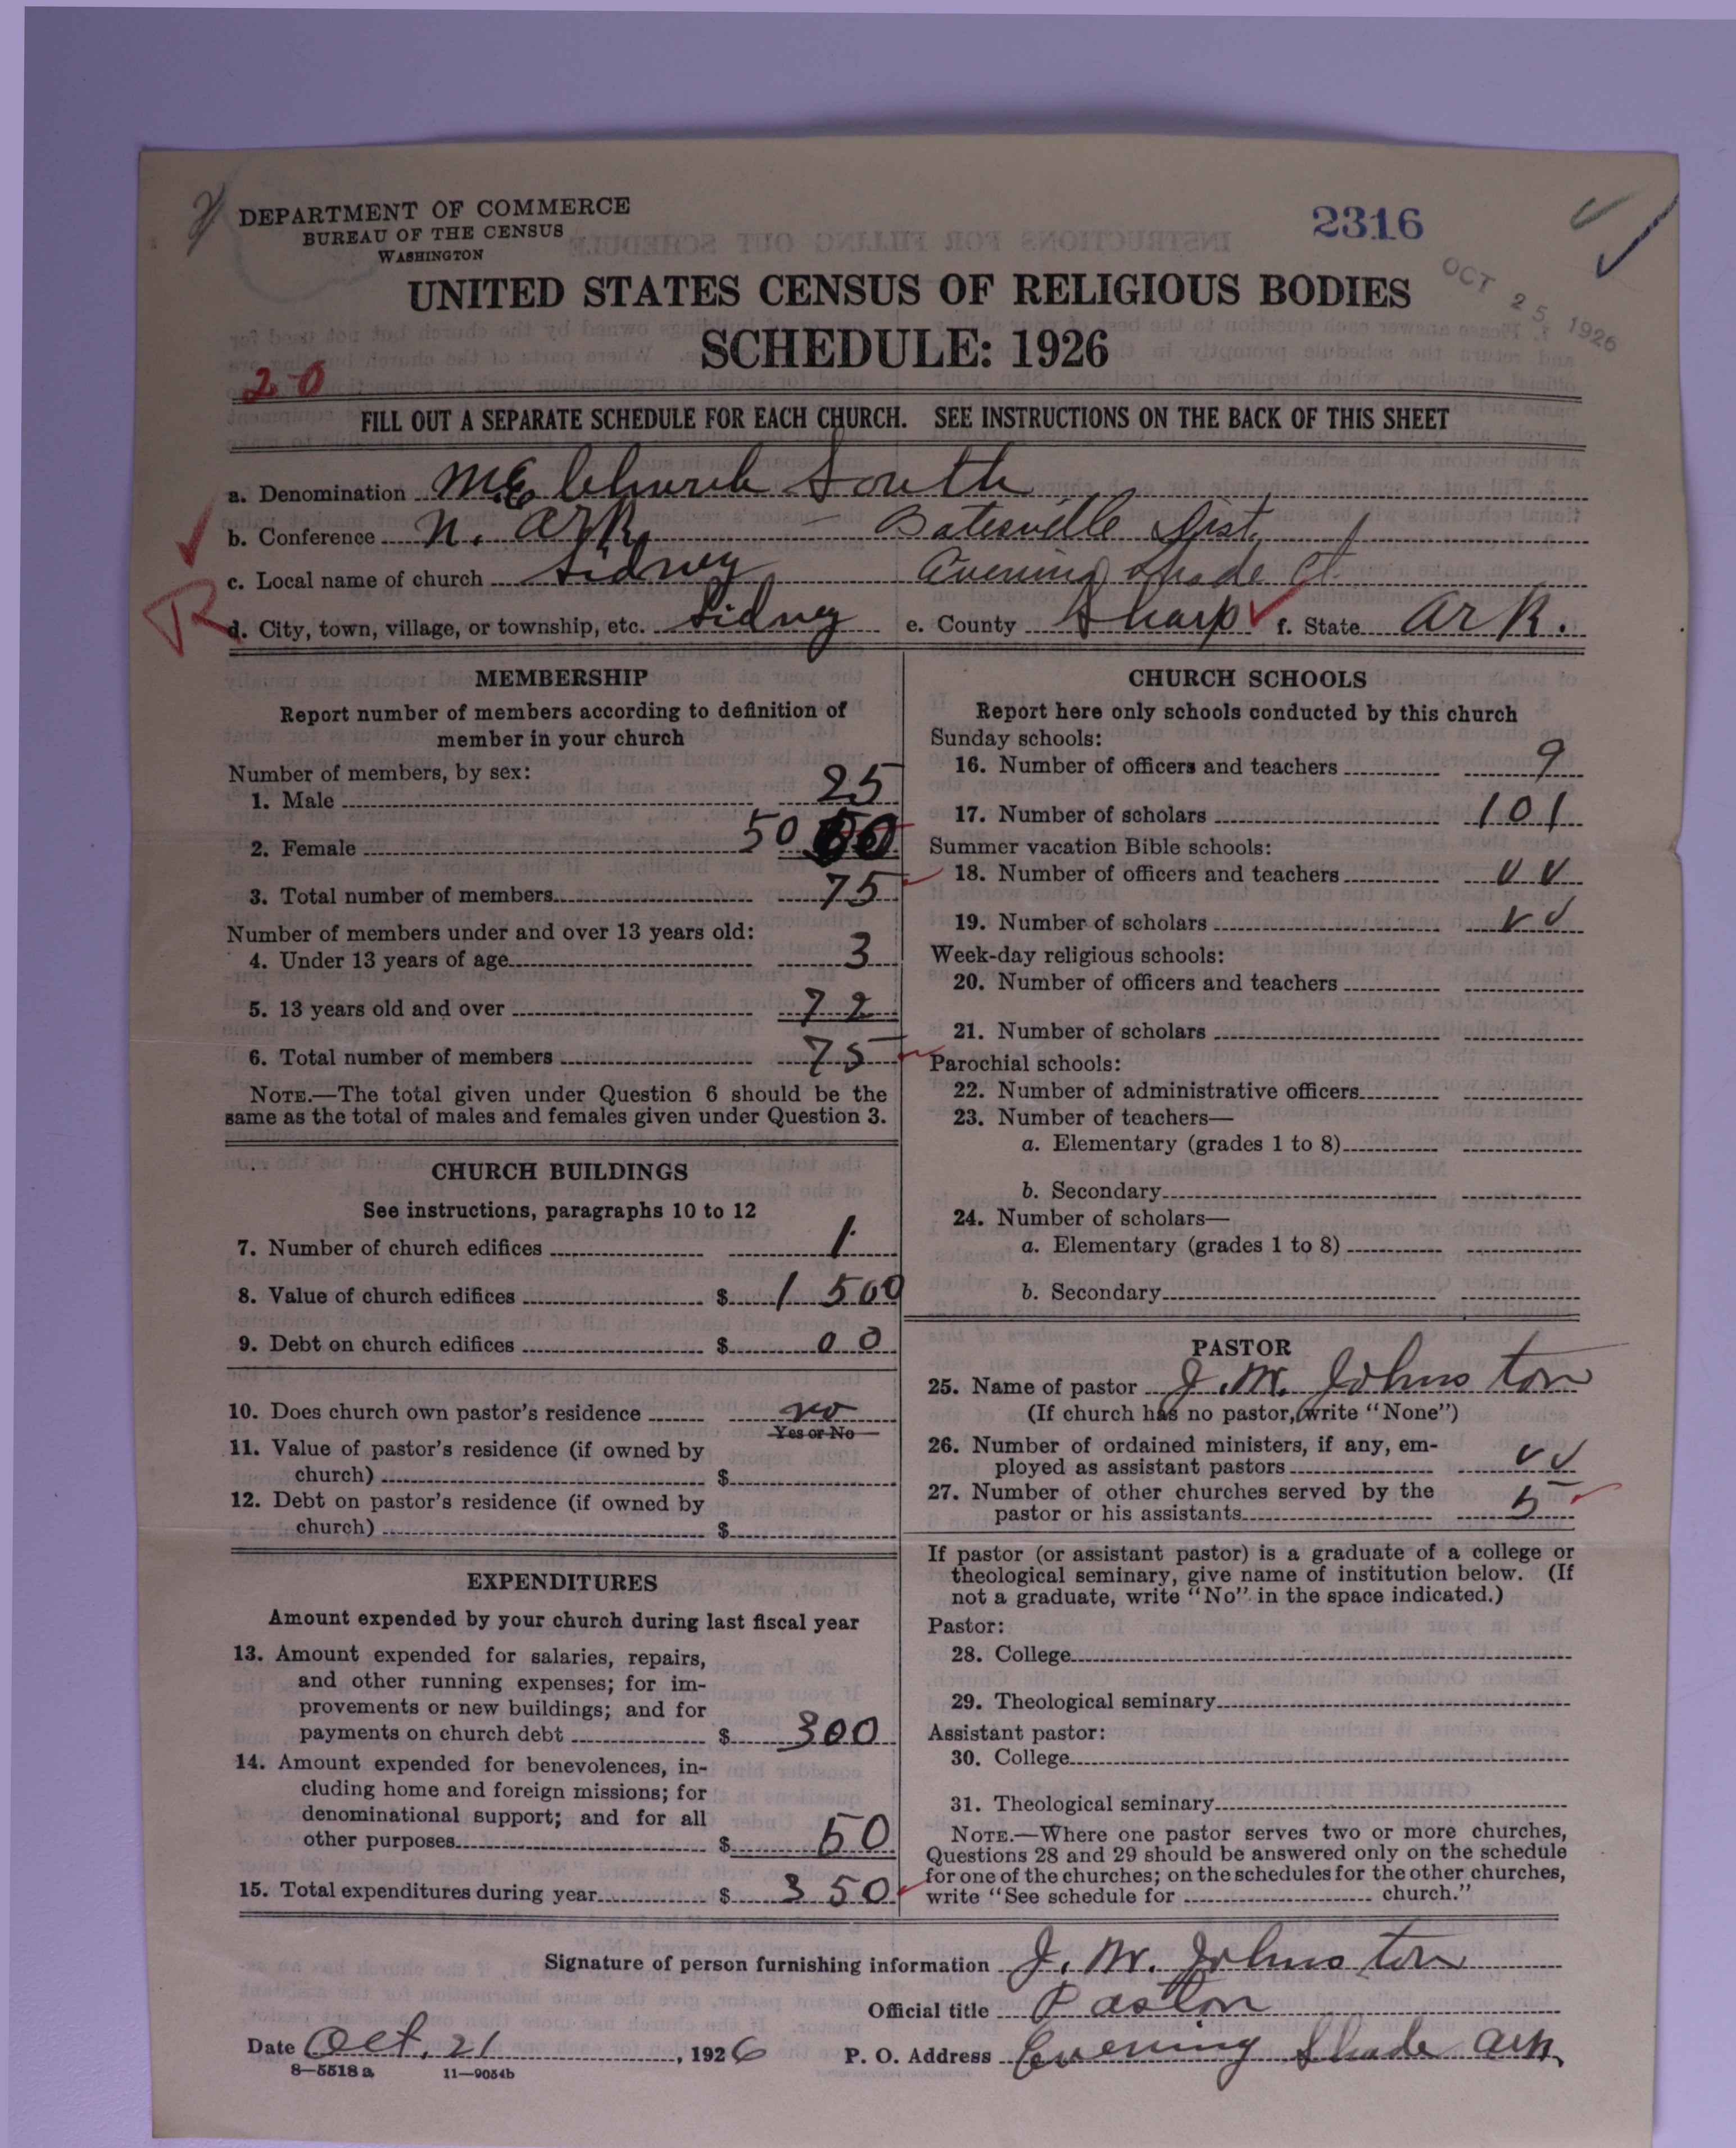 DEPARTMENT OF COMMERCE
BUREAU OF THE CENSUS
WASHINGTON
2316
OCT 25 1926
UNITED STATES CENSUS OF RELIGIOUS BODIES
SCHEDULE: 1926
20
FILL OUT A SEPARATE SCHEDULE FOR EACH CHURCH. SEE INSTRUCTIONS ON THE BACK OF THIS SHEET
a. Denomination M.E. Church South
b. Conference N. Ark - Batesville Dist.
c. Local name of church Sidney Evening Shade Ct.
R
d. City, town, village, or township, etc. Sidney e. County Sharp f. State Ark.
MEMBERSHIP
Report number of members according to definition of
member in your church
Number of members, by sex:
1. Male 25
2. Female 50
3. Total number of members 75
Number of members under and over 13 years old:
4. Under 13 years of age 3
5. 13 years old and over 72
6. Total number of members 75
NOTE.—The total given under Question 6 should be the
same as the total of males and females given under Question 3.
CHURCH BUILDINGS
See instructions, paragraphs 10 to 12
7. Number of church edifices 1
8. Value of church edifices $ 1500
9. Debt on church edifices $ 00
10. Does church own pastor's residence no
Yes or No
11. Value of pastor's residence (if owned by
church) $
12. Debt on pastor's residence (if owned by
church) $
EXPENDITURES
Amount expended by your church during last fiscal year
13. Amount expended for salaries, repairs,
and other running expenses; for im-
provements or new buildings; and for
payments on church debt $ 300
14. Amount expended for benevolences, in-
cluding home and foreign missions; for
denominational support; and for all
other purposes $ 50
15. Total expenditures during year $ 350
CHURCH SCHOOLS
Report here only schools conducted by this church
Sunday schools:
16. Number of officers and teachers 9
17. Number of scholars 101
Summer vacation Bible schools:
18. Number of officers and teachers
19. Number of scholars
Week-day religious schools:
20. Number of officers and teachers
21. Number of scholars
Parochial schools:
22. Number of administrative officers
23. Number of teachers—
a. Elementary (grades 1 to 8)
b. Secondary
24. Number of scholars—
a. Elementary (grades 1 to 8)
b. Secondary
PASTOR
25. Name of pastor J. M. Johnston
(If church has no pastor, write "None")
26. Number of ordained ministers, if any, em-
ployed as assistant pastors
27. Number of other churches served by the
pastor or his assistants 5
If pastor (or assistant pastor) is a graduate of a college or
theological seminary, give name of institution below. (If
not a graduate, write "No" in the space indicated.)
Pastor:
28. College
29. Theological seminary
Assistant pastor:
30. College
31. Theological seminary
NOTE.—Where one pastor serves two or more churches,
Questions 28 and 29 should be answered only on the schedule
for one of the churches; on the schedules for the other churches,
write "See schedule for church."
Signature of person furnishing information J. M. Johnston
Official title Pastor
Date Oct. 21, 1926 P. O. Address Evening Shade Ark.
8—5518a 11—9054b